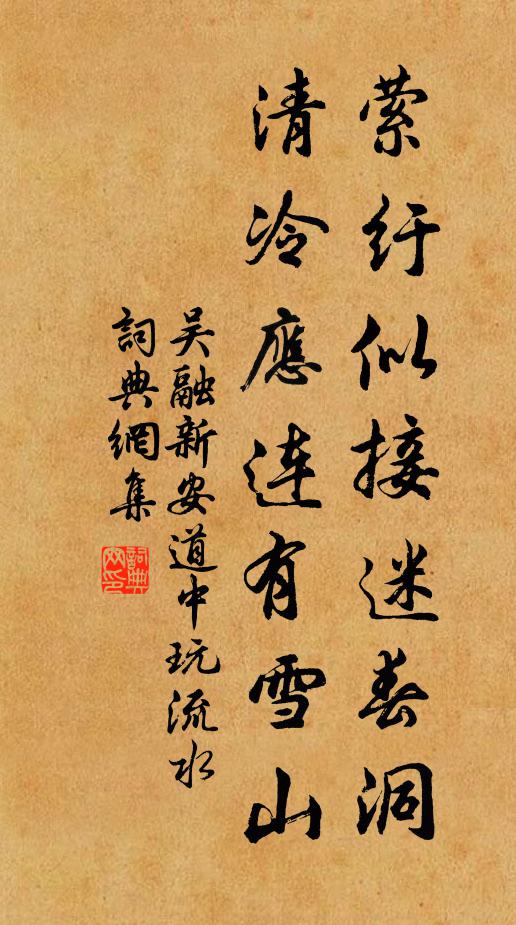 萦纡似接迷春洞
清冷應连有雪山
吴融新安道中玩流水
詞典網集
詞典網印